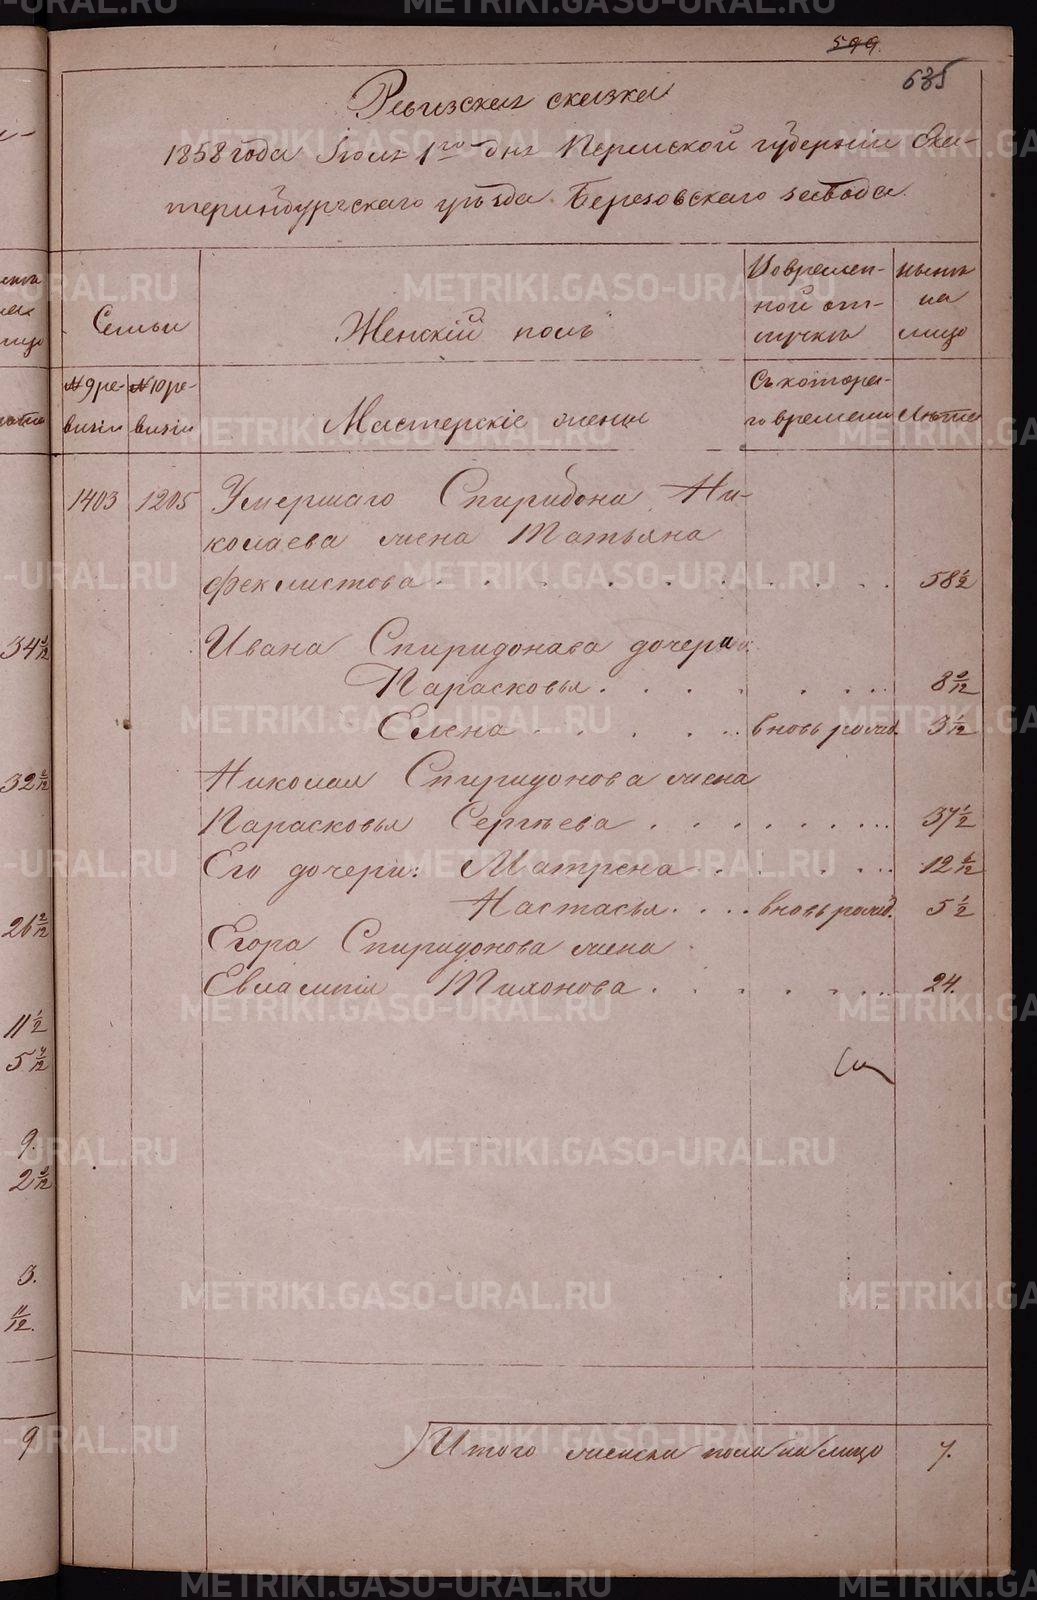 599.
635
Ревизская сказка
1858 года Июля 1го дня Пермской губерніи Ека-
теринбургскаго уѣзда Березовскаго завода
Семьи
Женскій полъ
Во времен-
ной от-
лучкѣ
нынѣ
на
лицо
№ 9 ре-
визіи
№ 10 ре-
визіи
Мастерскіе жены
Съ котора-
го времени
Лѣта
1403 1205 Умершаго Спиридона Ни-
колаева жена Татьяна
Феклистова . . . . . . . . . 58 1/2
Ивана Спиридонова дочери:
Парасковья . . . . . . . 8
Елена . . . . . . вновь рожд. 3
Николая Спиридонова жена
Парасковья Сергѣева . . . . . . . . 37 1/2
Его дочери: Матрена . . . . . . 12
Настасья . . . . вновь рожд. 5 1/2
Егора Спиридонова жена
Евлампія Тихонова . . . . . . . . 24.
Итого женска пола на лицо 7.
34
32
26
11 1/2
5
9.
2
3.
11/12.
9
METRIKI.GASO-URAL.RU